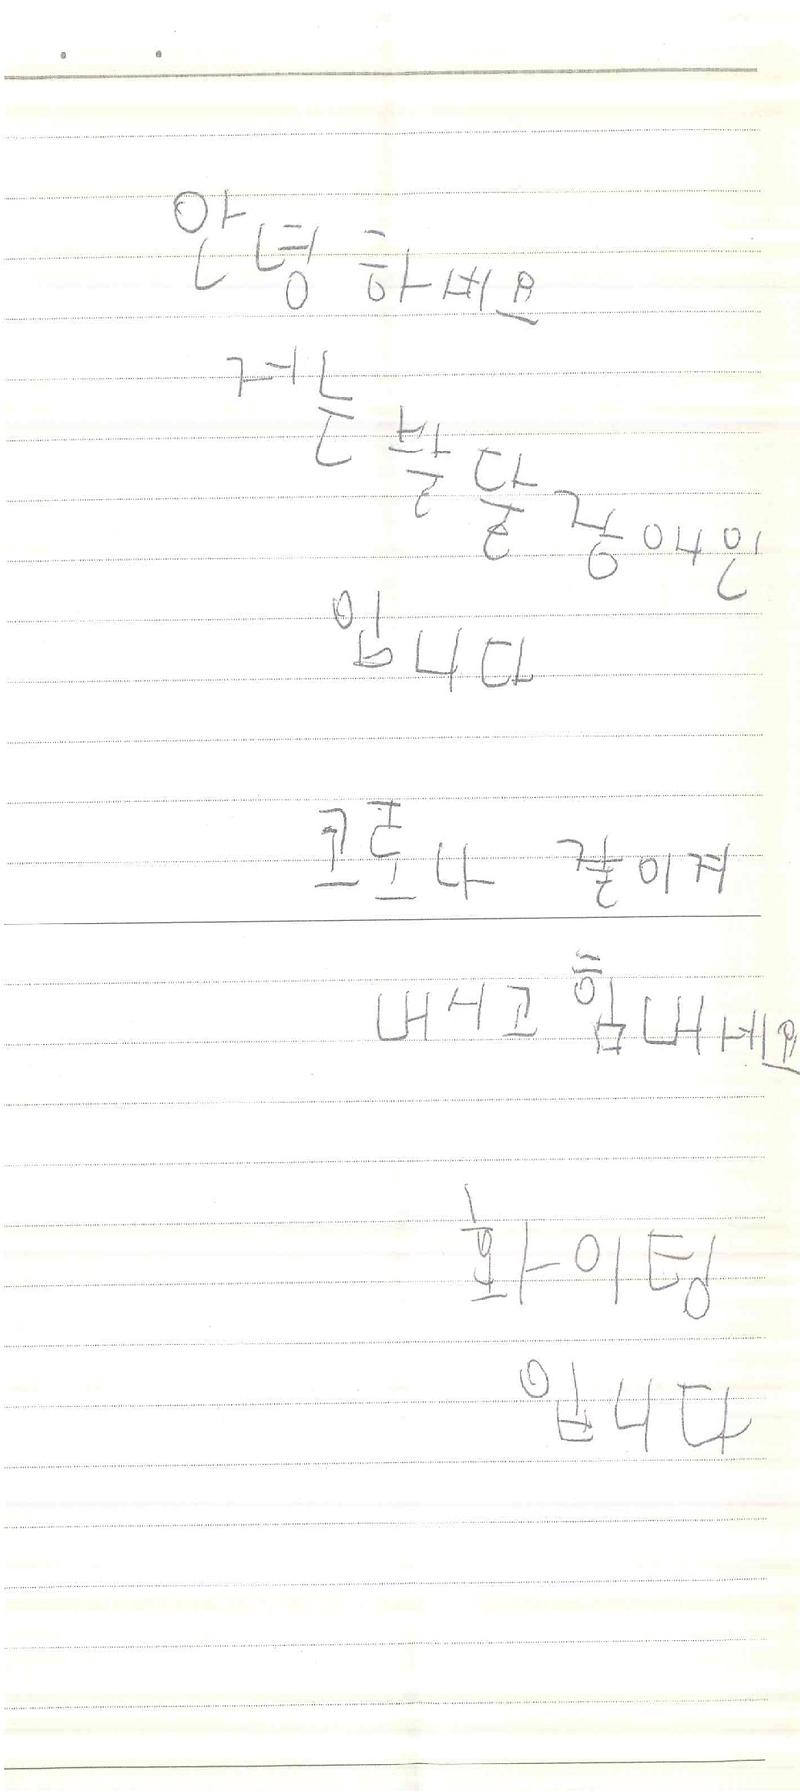 안녕하세요
저는 발달장애인
입니다
코로나 잘이겨
내시고 힘내세요
화이팅
입니다